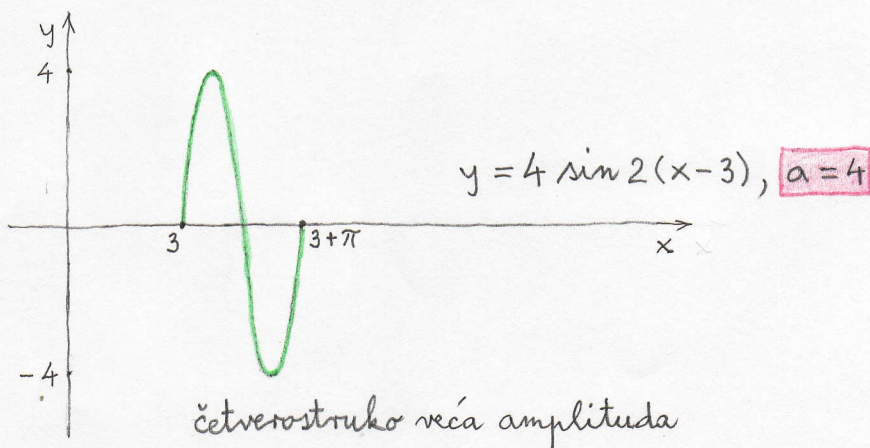 y
4
y = 4 sin 2(x-3), a = 4
3
3+π
x
x
-4
četverostruko veća amplituda